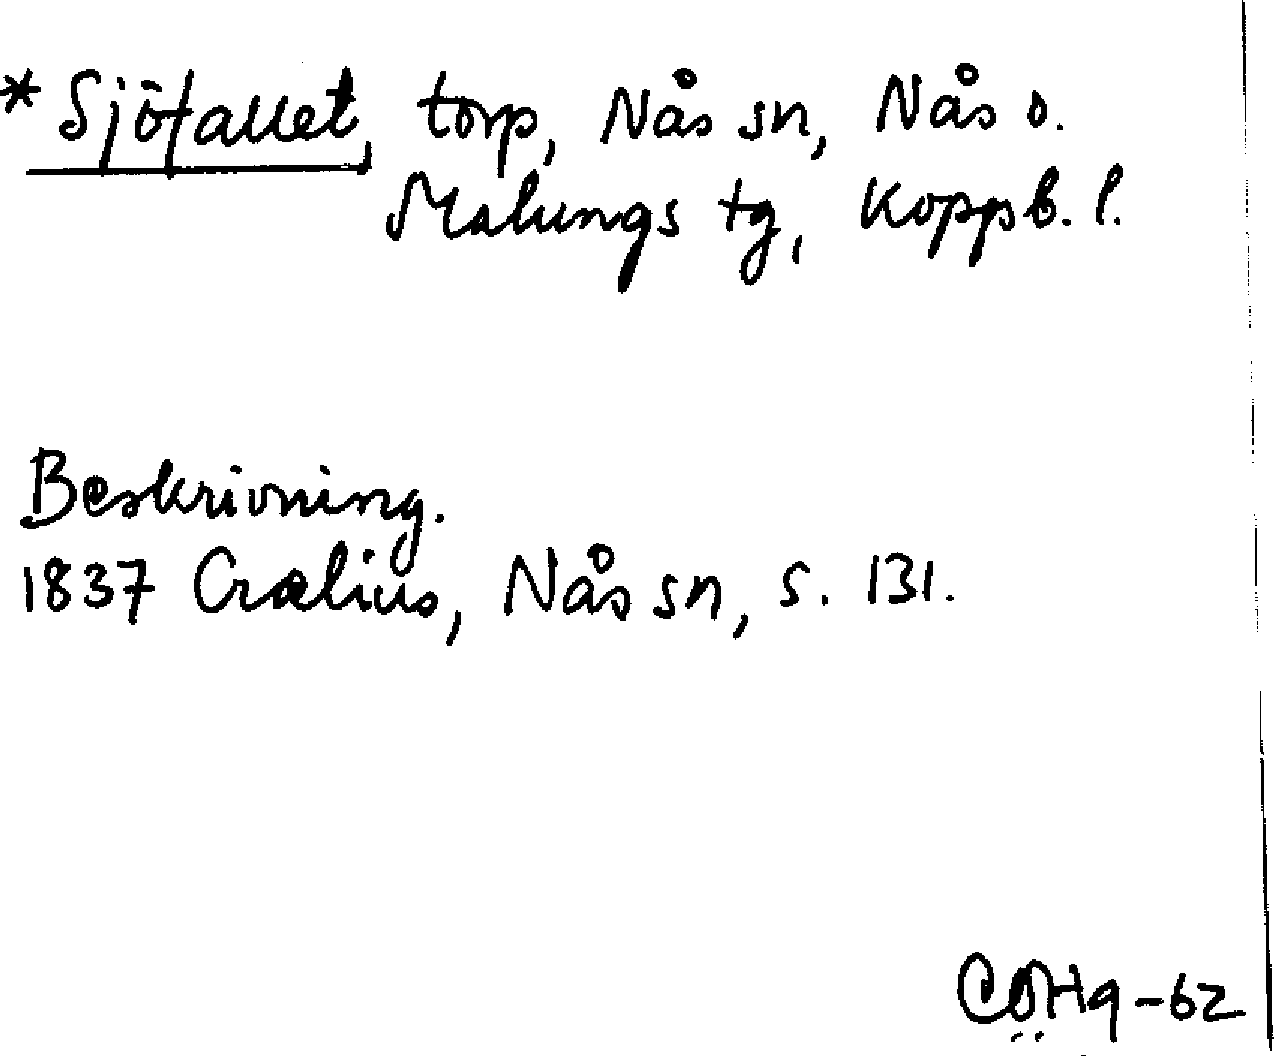 *Sjöfallet, torp, Nås sn, Nås o.
Malungs tg, Koppb. l.
Beskrivning.
1837 Crælius, Nås sn, s. 131.